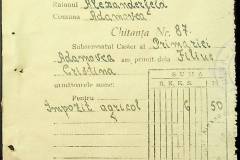 Raionul Alexanderfeld
Comuna Adamovca
Chitanța Nr. 87.
Subsemnatul Casier al Primăriei
Adamovca am primit dela Filius
Cristina
următoarele sume:
SUMA
Pentru
Impozit agricol 6 50